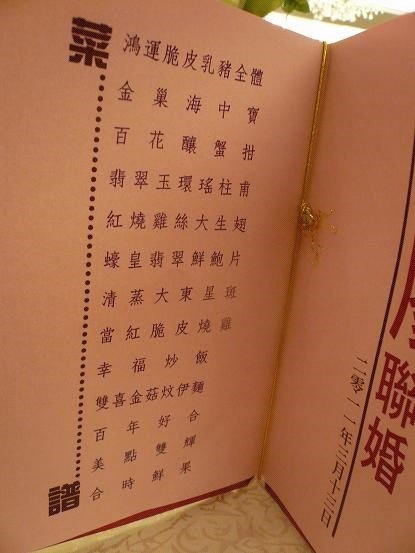 菜譜
鴻運脆皮乳豬全體
金巢海中寶
百花釀蟹拑
翡翠玉環瑤柱甫
紅燒雞絲大生翅
蠔皇翡翠鮮鮑片
清蒸大東星斑
當紅脆皮燒雞
幸福炒飯
雙喜金菇炆伊麵
百年好合
美點雙輝
合時鮮果
聯婚
二零一一年三月十三日